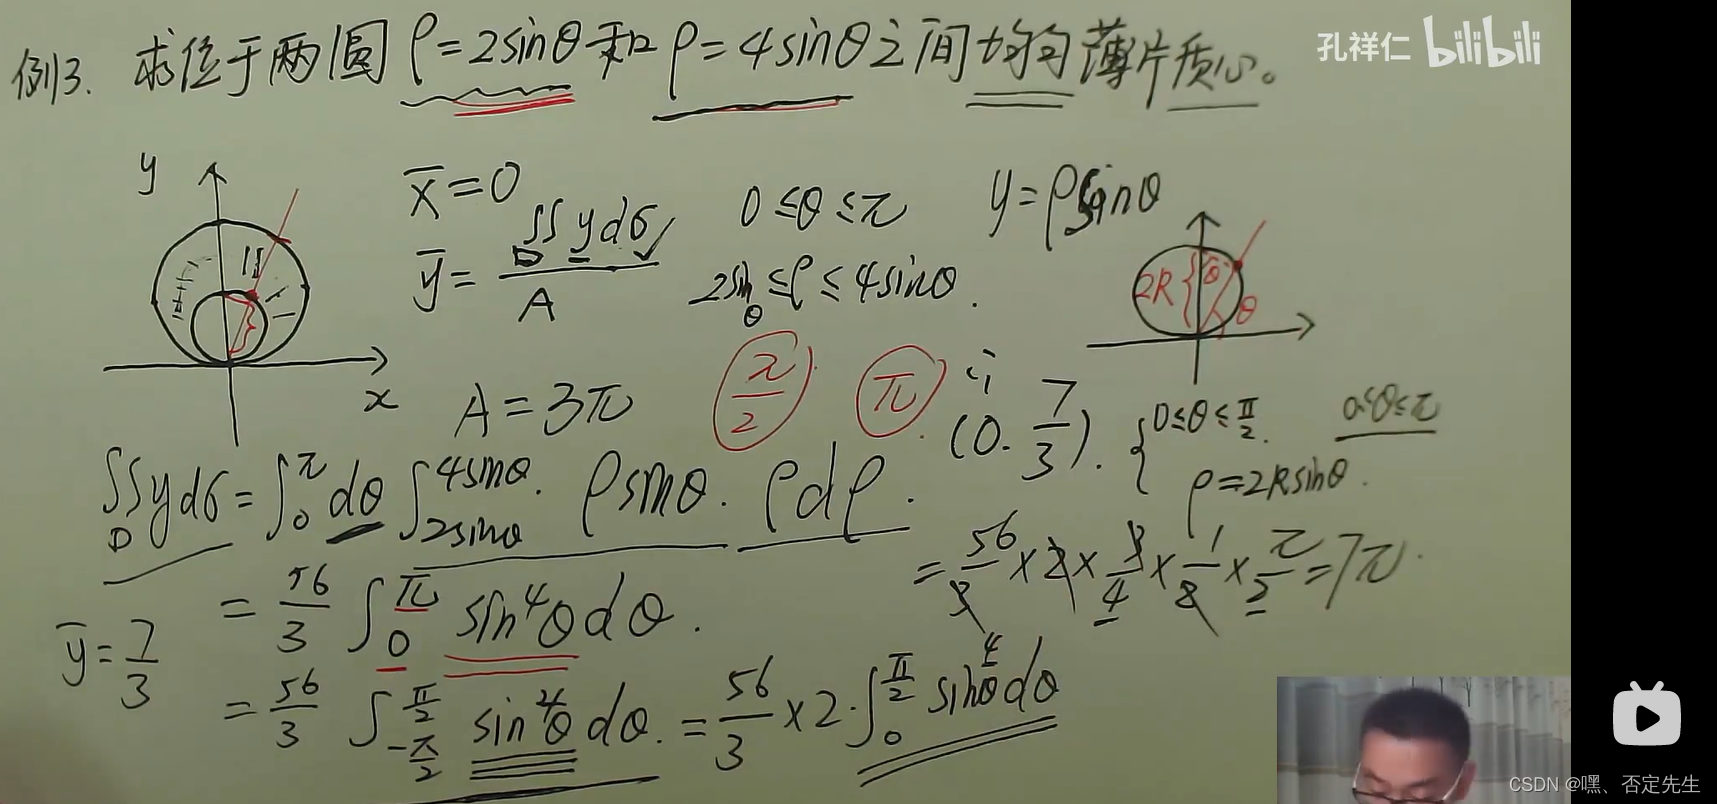 例3. 求位于两圆 ρ=2sinθ 和 ρ=4sinθ 之间均匀薄片质心。
孔祥仁 bilibili
y
x
x̄=0
ȳ = ∬_D y dσ / A
0≤θ≤π
2sinθ ≤ρ≤ 4sinθ.
y=ρsinθ
2R θ θ
A=3π
π/2
π
∴
(0. 7/3).
{ 0≤θ≤π/2.
0≤θ≤π
ρ=2Rsinθ.
∬_D y dσ = ∫_0^π dθ ∫_{2sinθ}^{4sinθ}. ρsinθ. ρdρ.
= 56/3 ∫_0^π sin⁴θ dθ.
= 56/3 ∫_{-π/2}^{π/2} sin⁴θ dθ. = 56/3 ×2·∫_0^{π/2} sin⁴θ dθ
= 56/3 ×2× 3/4 × 1/2 × π/2 = 7π.
ȳ= 7/3
CSDN @嘿、否定先生